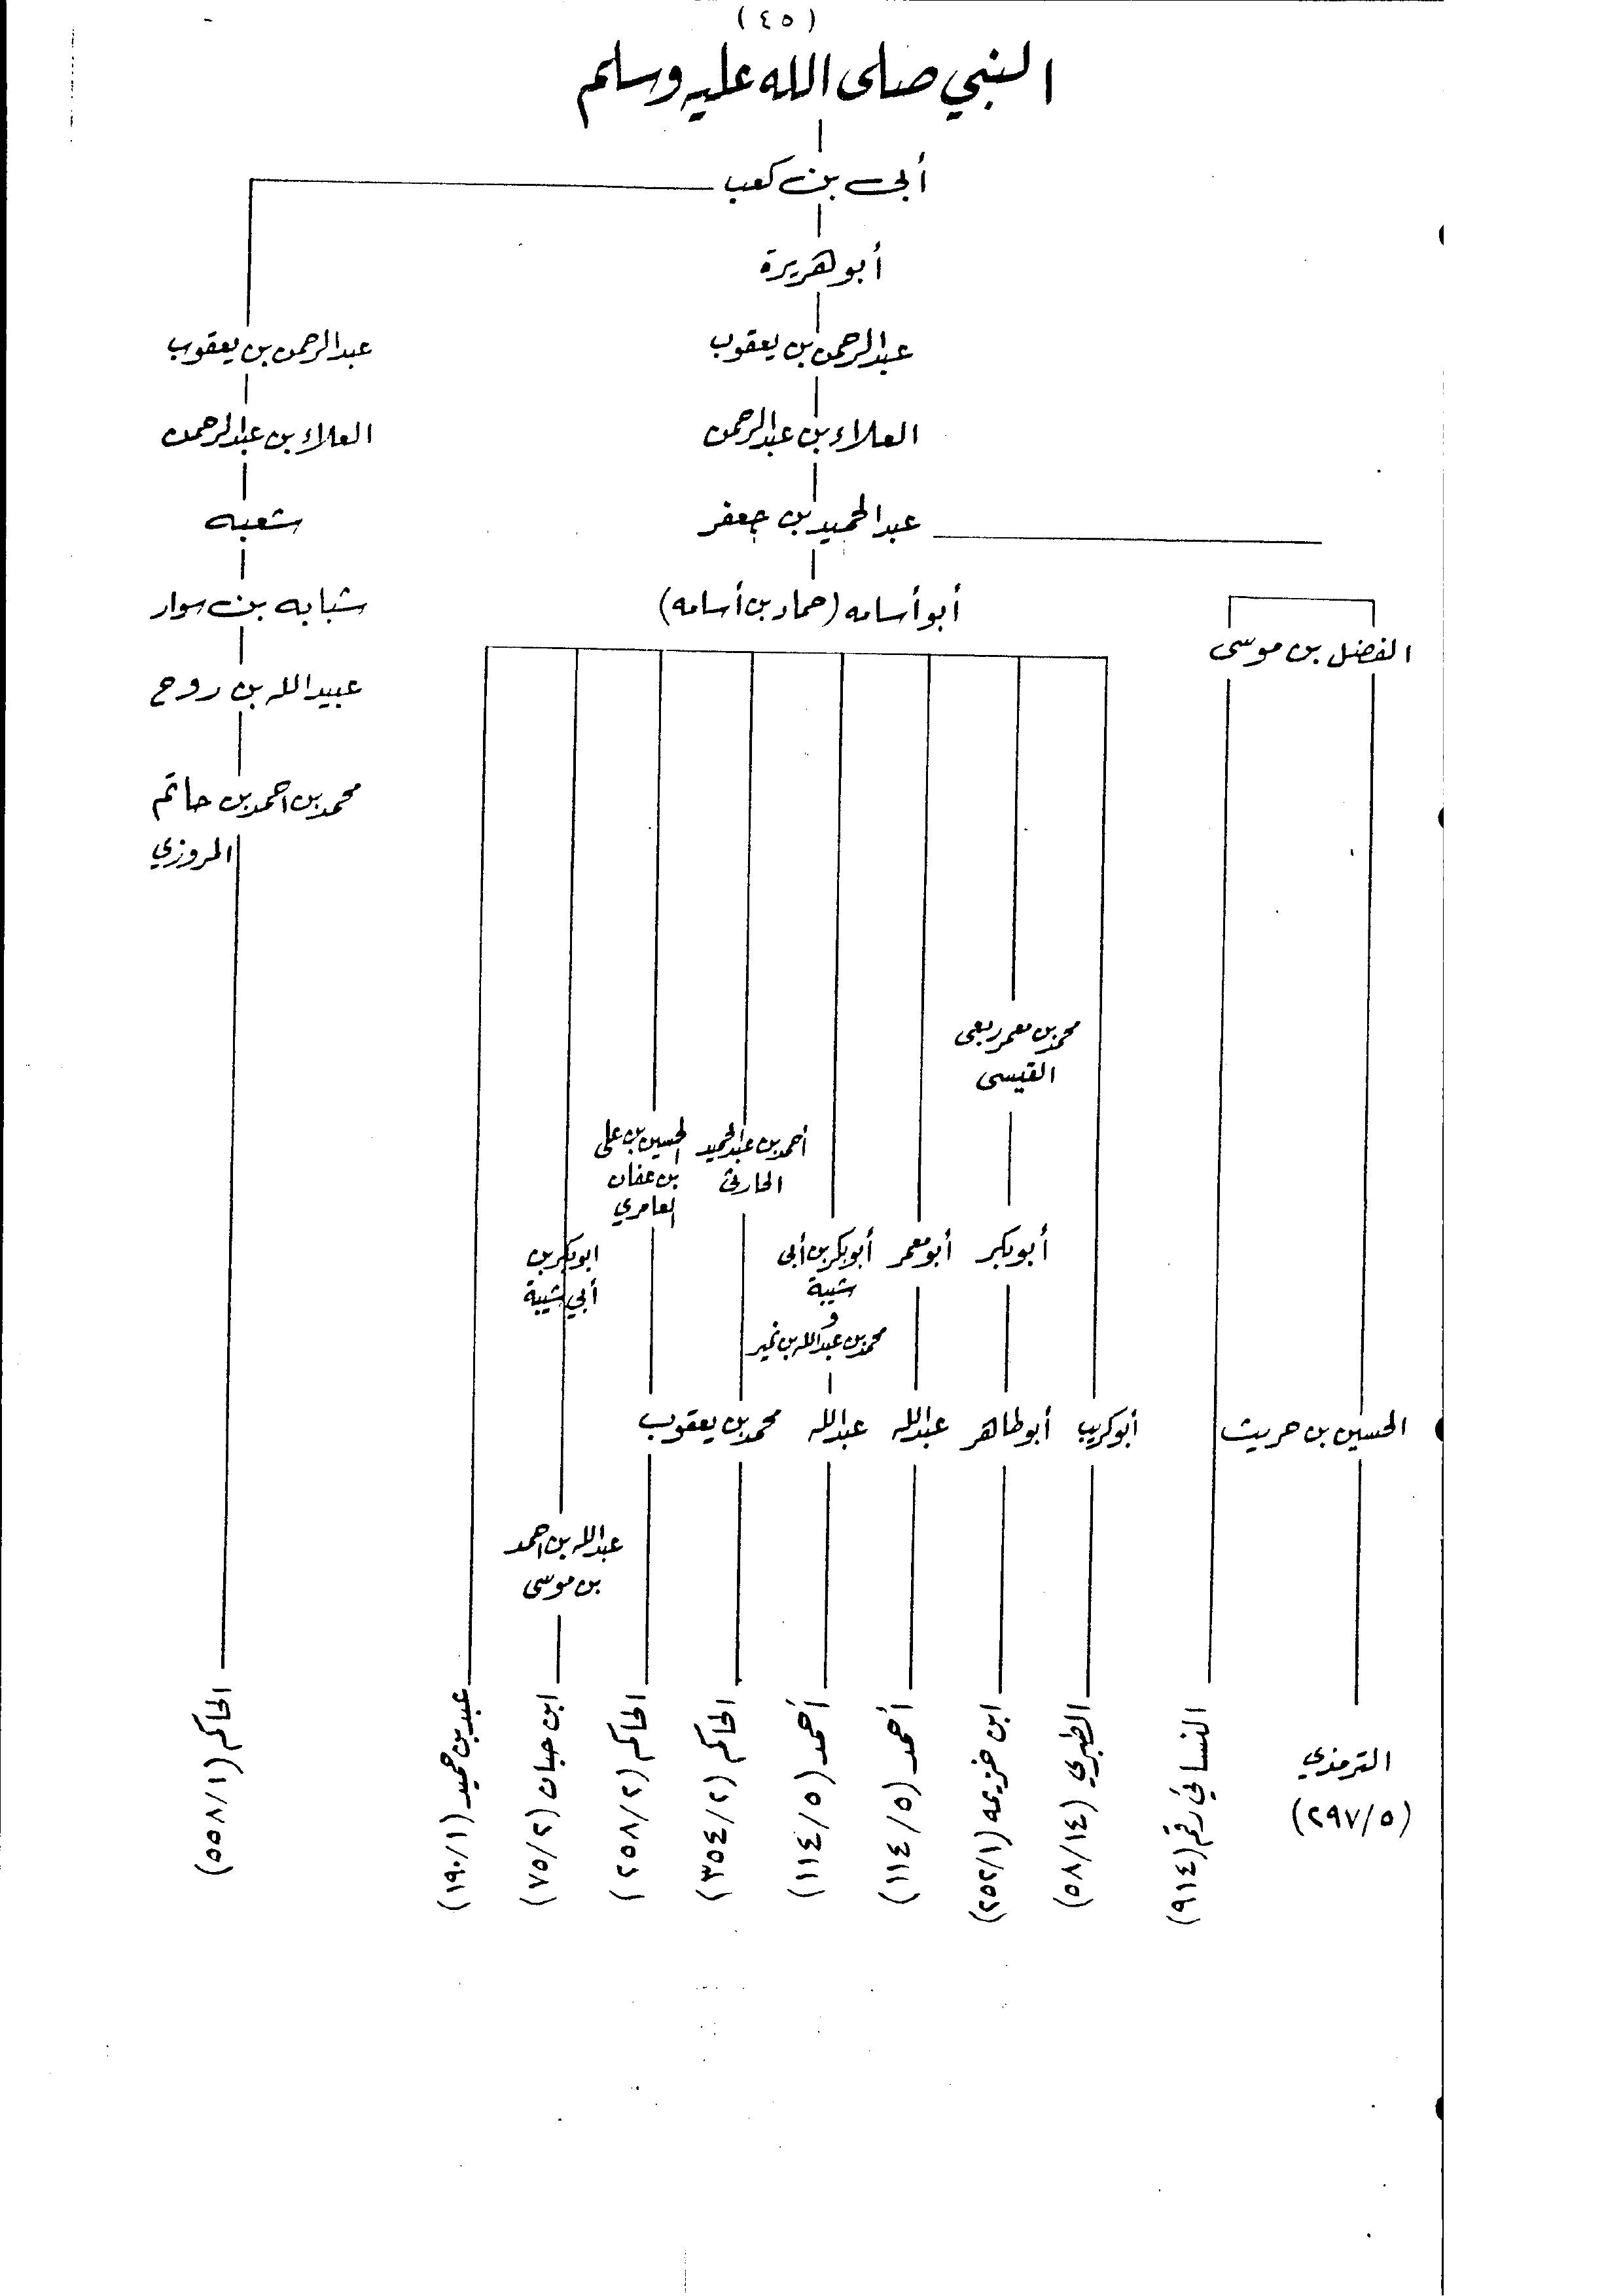 (٤٥)
النبي صلى الله عليه وسلم
أبى بن كعب
أبو هريرة
عبدالرحمن بن يعقوب
عبدالرحمن بن يعقوب
العلاء بن عبدالرحمن
العلاء بن عبدالرحمن
عبدالحميد بن جعفر
شعبه
أبو أسامه (حماد بن أسامه)
شبابه بن سوار
الفضل بن موسى
عبيدالله بن روح
محمد بن احمد بن حاتم
المروزي
محمد بن معمر ربعى
القيسى
أحمد بن عبدالحميد
الحارثى
الحسين بن على
بن عفان
العامري
أبوبكر
أبو معمر
أبوبكر بن أبى
شيبة
و
محمد بن عبدالله بن نمير
ابوبكر بن
أبي شيبة
الحسين بن حريث
أبو كريب
أبو طاهر
عبدالله
عبدالله
محمد بن يعقوب
عبدالله بن احمد
بن موسى
الترمذي
(٢٩٧/٥)
النسائي رقم (٩١٤)
الطبري (٥٨/١٤)
ابن خزيمه (٢٥٢/١)
أحمد (١١٤/٥)
أحمد (١١٤/٥)
الحاكم (٣٥٤/٢)
الحاكم (٢٥٨/٢)
ابن حبان (٧٥/٢)
عبد بن حميد (١٩٠/١)
الحاكم (٥٥٨/١)